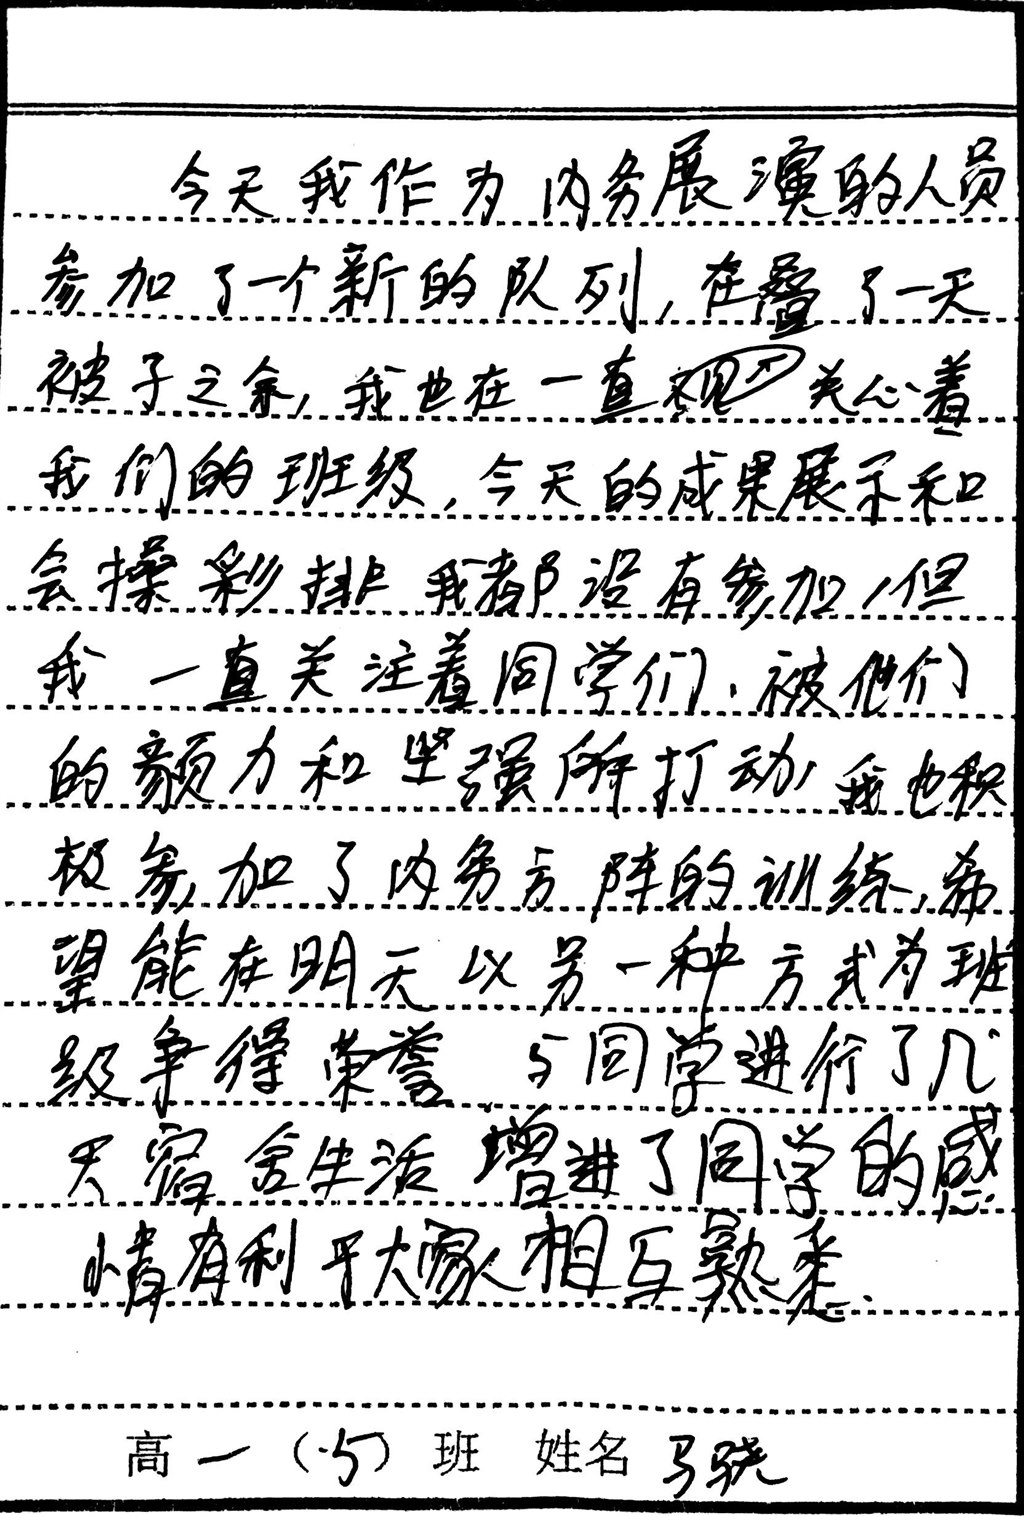 今天我作为内务展演的人员
参加了一个新的队列,在叠了一天
被子之余,我也在一直关心着
我们的班级,今天的成果展示和
会操彩排我都没有参加,但
我一直关注着同学们,被他们
的毅力和坚强所打动,我也积
极参加了内务方阵的训练,希
望能在明天以另一种方式为班
级争得荣誉 与同学进行了几
天宿舍生活 增进了同学的感
情有利于大家相互熟悉.
高一(5)班 姓名 马骁